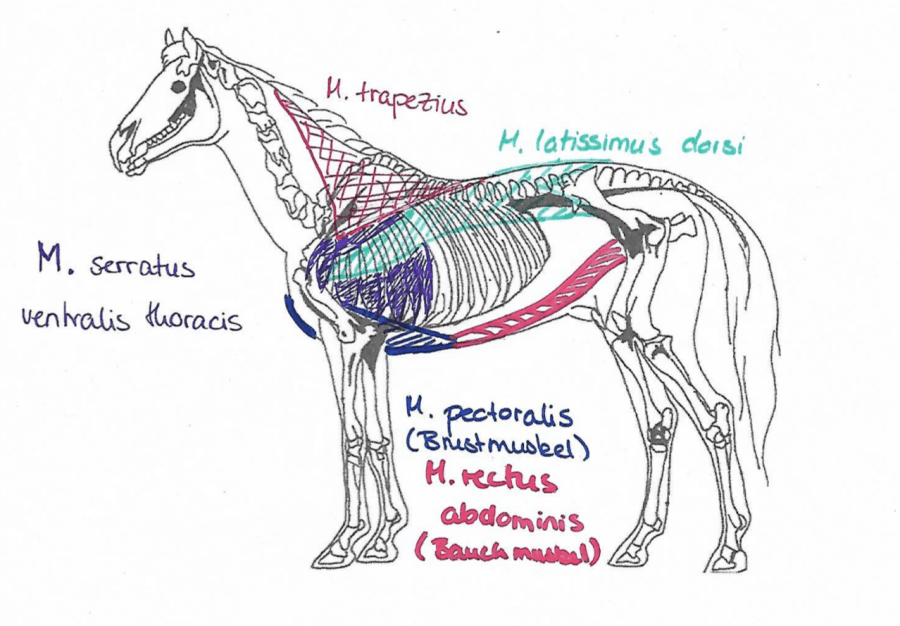 M. trapezius
M. latissimus dorsi
M. serratus
ventralis thoracis
M. pectoralis
(Brustmuskel)
M. rectus
abdominis
(Bauchmuskel)